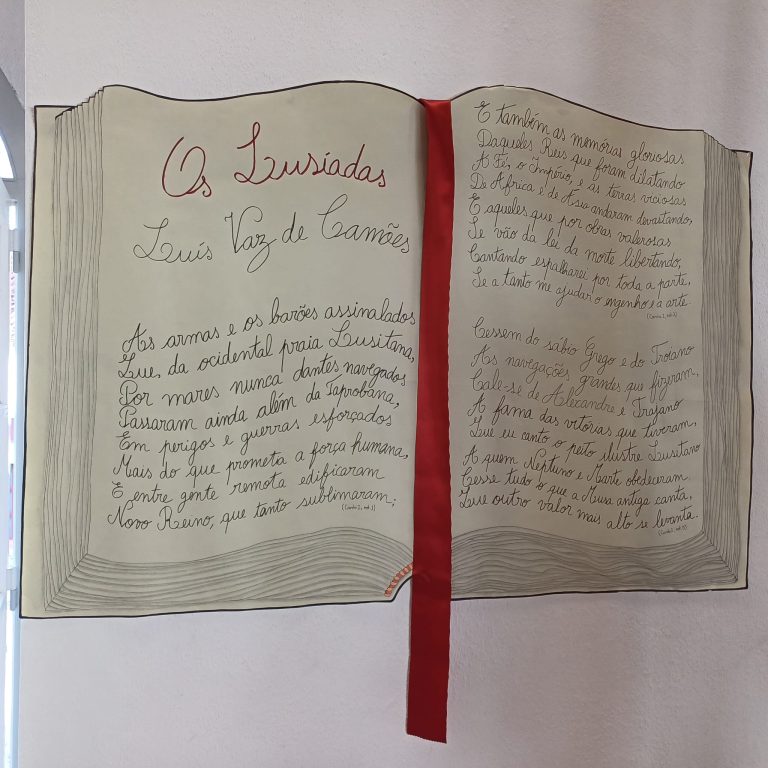 Os Lusíadas
Luís Vaz de Camões
As armas e os barões assinalados
Que, da ocidental praia Lusitana,
Por mares nunca dantes navegados
Passaram ainda além da Taprobana,
Em perigos e guerras esforçados
Mais do que prometia a força humana,
E entre gente remota edificaram
Novo Reino, que tanto sublimaram;
E também as memórias gloriosas
Daqueles Reis que foram dilatando
A Fé, o Império, e as terras viciosas
De África e de Ásia andaram devastando,
E aqueles que por obras valerosas
Se vão da lei da morte libertando,
Cantando espalharei por toda a parte,
Se a tanto me ajudar o engenho e a arte.
Cessem do sábio Grego e do Troiano
As navegações grandes que fizeram,
Cale-se de Alexandre e Trajano
A fama das vitórias que tiveram,
Que eu canto o peito ilustre Lusitano
A quem Neptuno e Marte obedeceram.
Cesse tudo o que a Musa antiga canta,
Que outro valor mais alto se levanta.